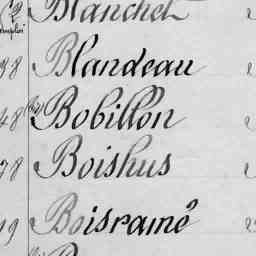 Blanchet
98 Blandeau
48 Bobillon
78 Boishus
99 Boisramé